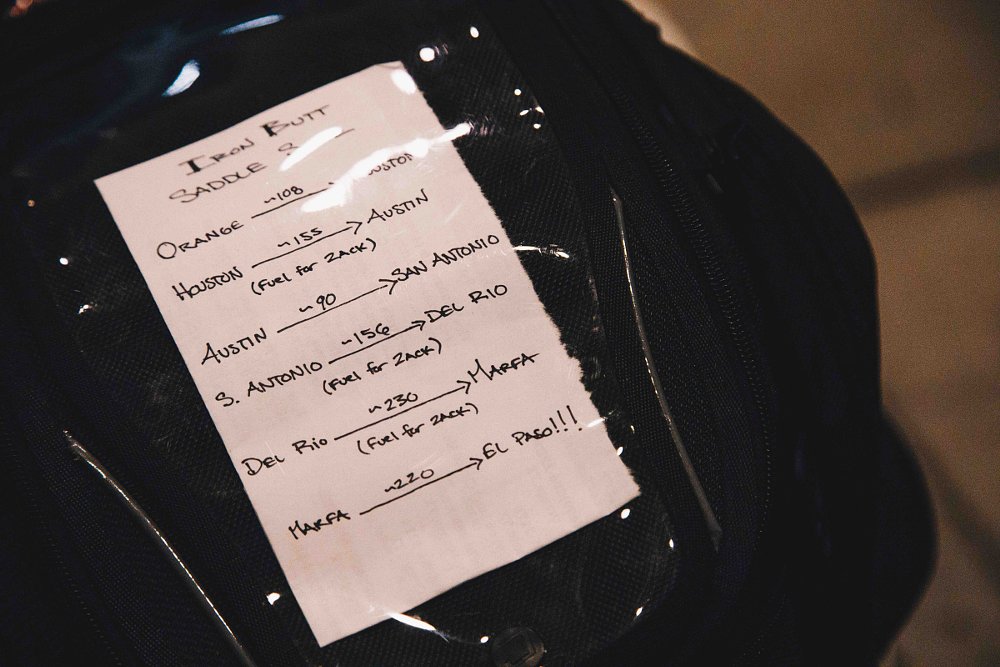 IRON BUTT
SADDLE S
ORANGE ~108
HOUSTON ~155 → AUSTIN
(Fuel for ZACK)
AUSTIN ~90 → SAN ANTONIO
S. ANTONIO ~156 → DEL RIO
(Fuel for ZACK)
DEL RIO ~230 → MARFA
(Fuel for ZACK)
MARFA ~220 → EL PASO!!!